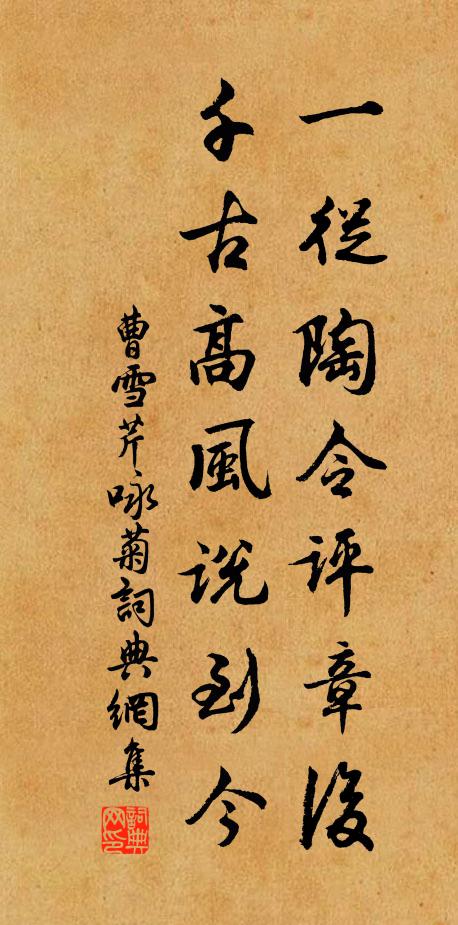 一從陶令評章後
千古高風說到今
曹雪芹咏菊詞典網集
詞典网印